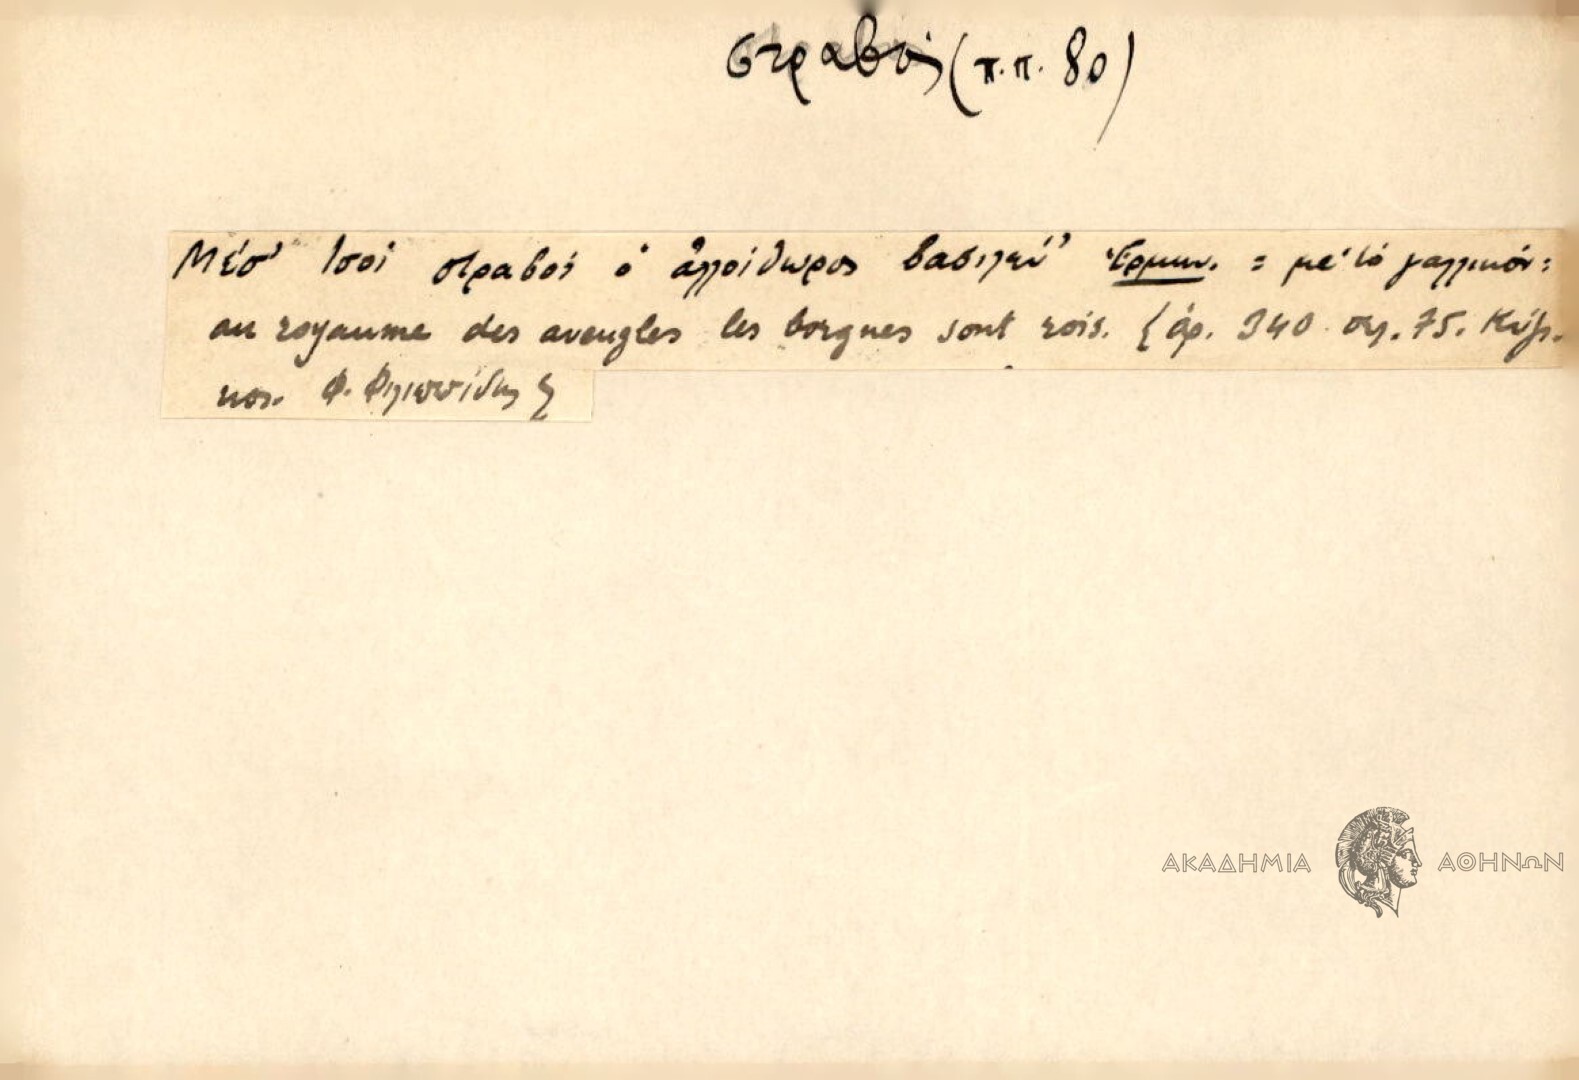 στραβός (π.π. 80)
Μέσ' 'σοὶ στραβοὶ ὁ ἀλλοίθωρος βασιλεύ' Ἑρμην. = μὲ τὸ γαλλικόν:
au royaume des aveugles les borgnes sont rois. {ἀρ. 340 σελ. 75. Κύζι-
κος. Φ. Φιλιππίδης}
ΑΚΑΔΗΜΙΑ ΑΘΗΝΩΝ